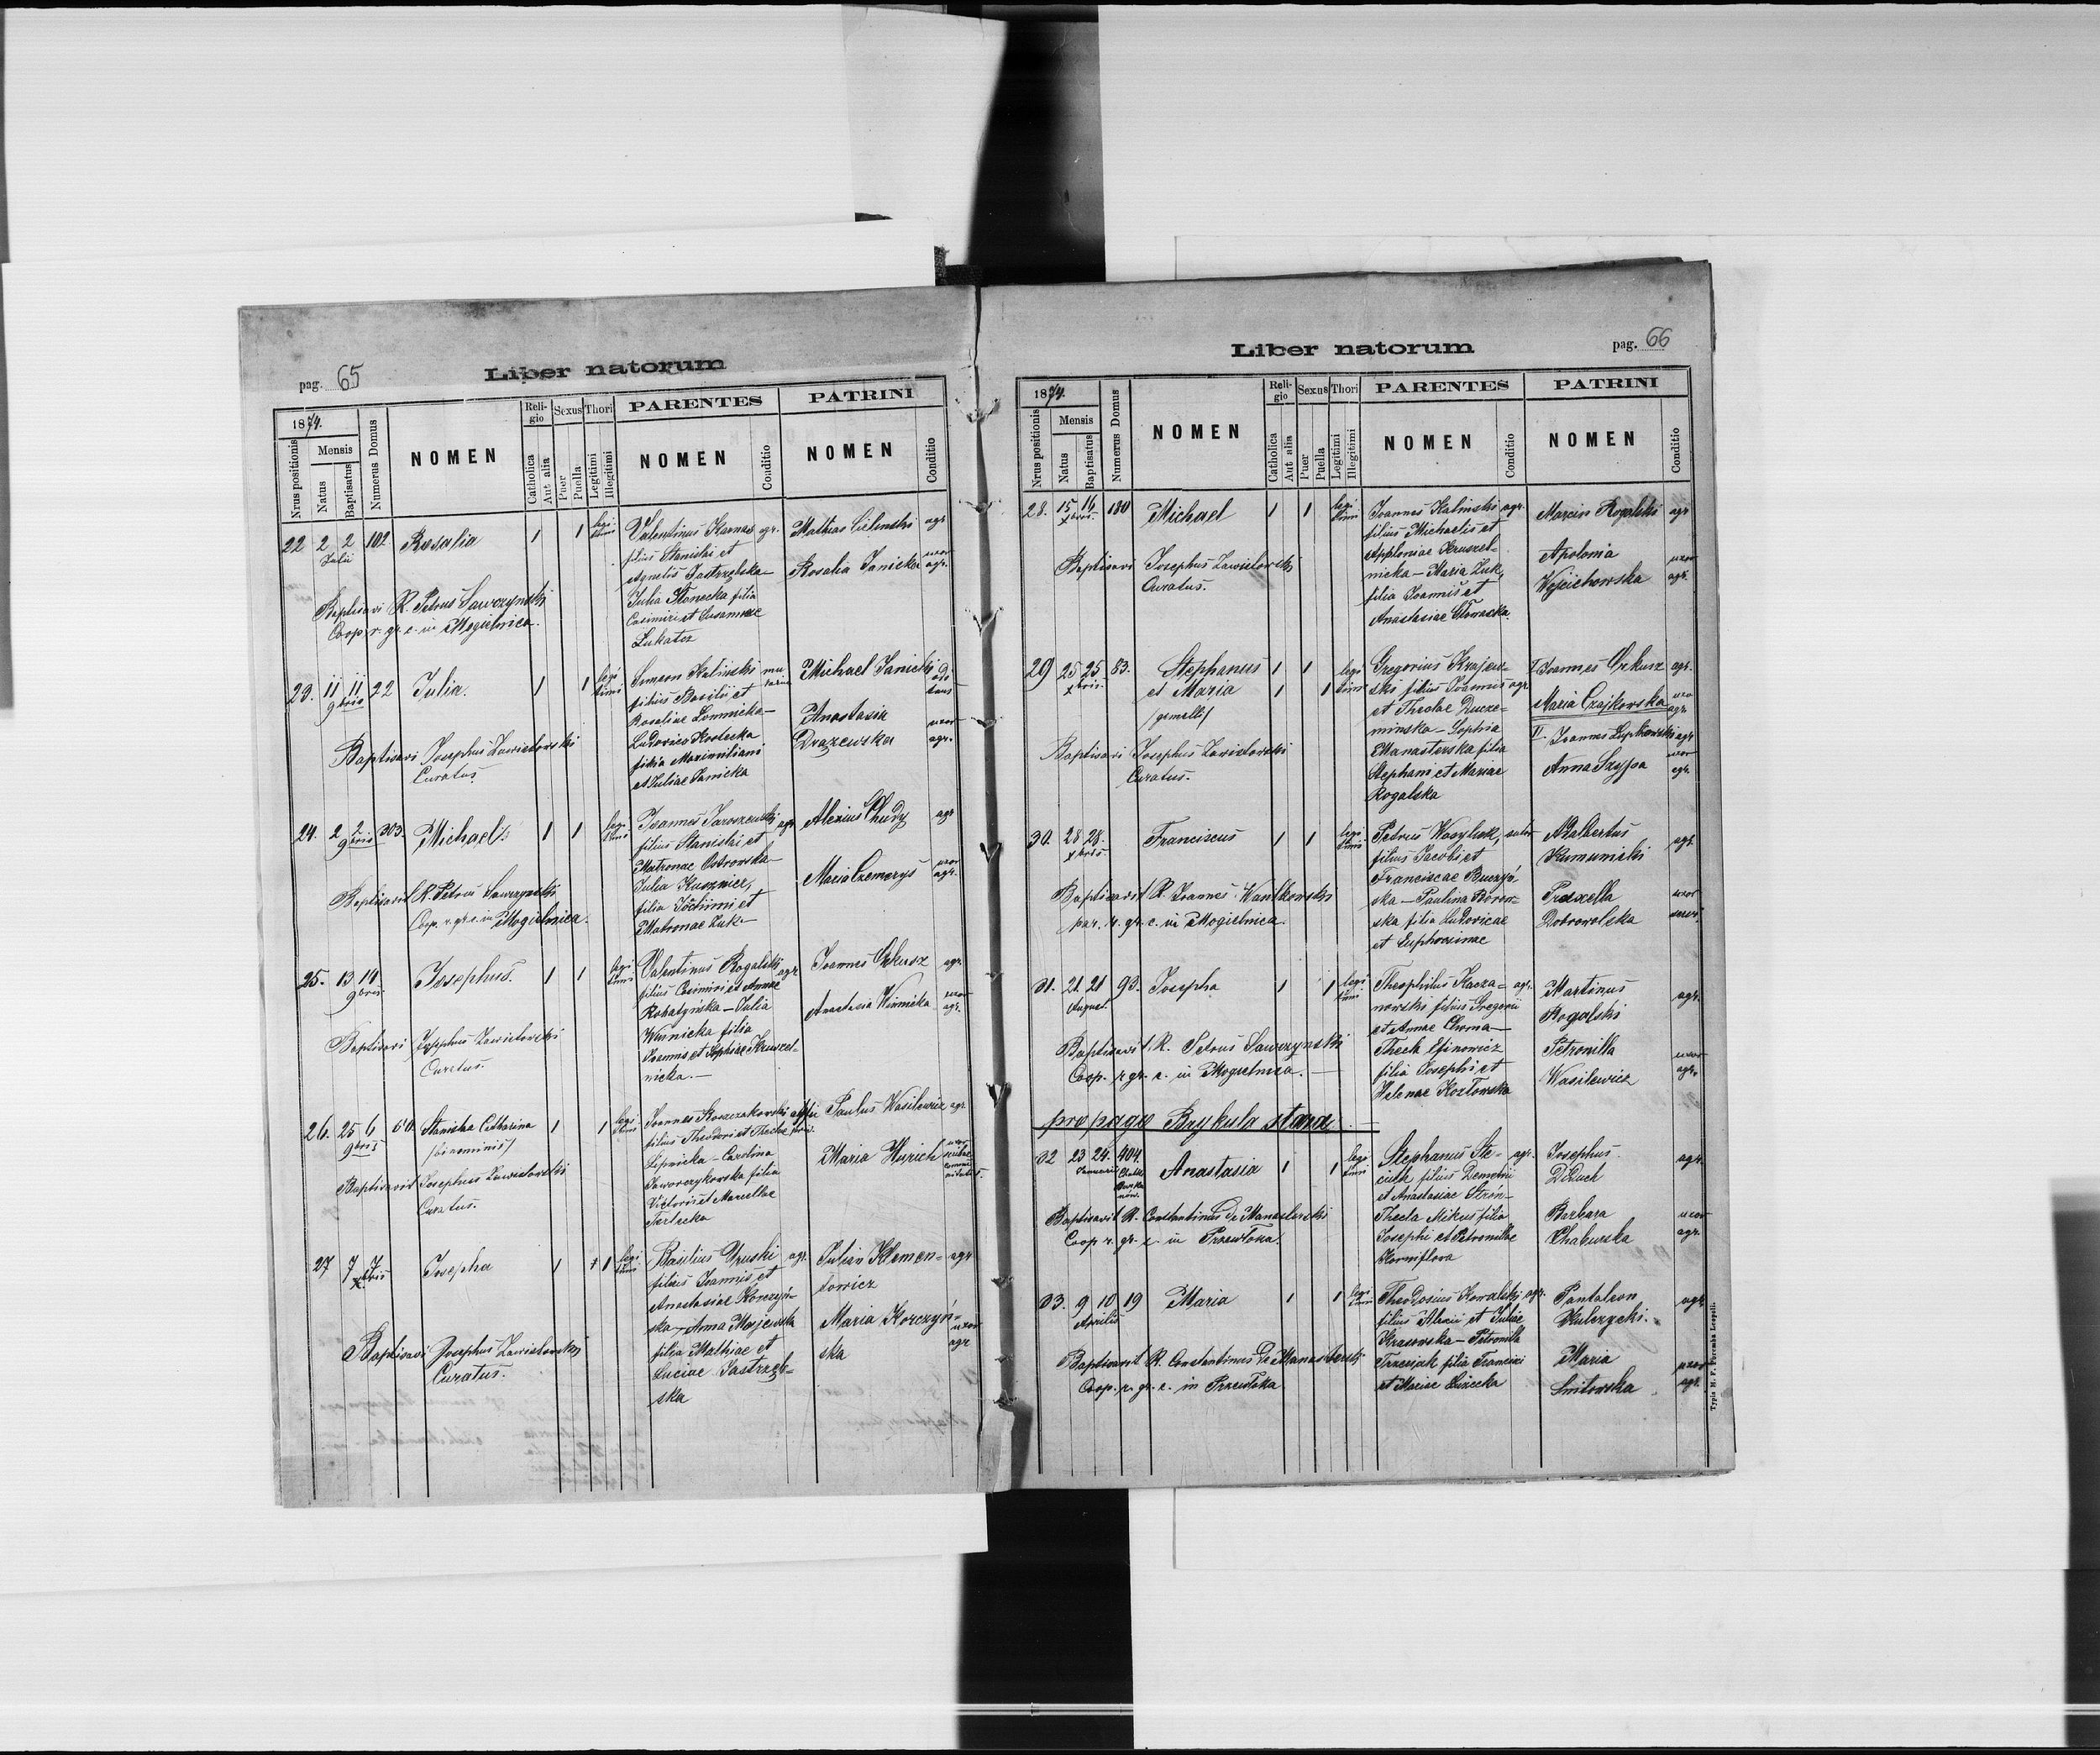 pag. 65
Liber natorum
1874.
Nrus positionis
Mensis
Natus
Baptisatus
Numerus Domus
NOMEN
Religio
Catholica
Aut alia
Sexus
Puer
Puella
Thori
Legitimi
Illegitimi
PARENTES
NOMEN
Conditio
PATRINI
NOMEN
Conditio
22 2 2 102 Rosalia 1 1 legi
Julii timi
Valentinus Karnas agr.
filius Stanislai et
Agnetis Jastrzębska
Julia Słonecka filia
Casimiri et Susannae
Łukator
Mathias Cielenski agr
Rosalia Janicka uxor
agr.
Baptisavi R. Petrus Sawczynski
Coop. r. gr. c. in Mogielnica.
23. 11 11 22 Julia. 1 1 legi
9bris timi
Simeon Kalinski
filius Basilii et
Rosaliae Łomnicka
Ludovica
filia Maximiliani
et Juliae Janicka
Michael Janicki
Anastasia uxor
Drazewska agr.
Baptisavi Josephus Zawistowski
Curatus
24. 2 2 303 Michael 1 1 legi
9bris timi
Joannes Jaroszewski agr
filius Stanislai et
Matronae Ostrowska
Julia Kusznier,
filia Jochimi et
Matronae Łuk
Alexius Chudy agr
Maria Czemerys uxor
agr.
Baptisavit R. Petrus Sawczynski
Coop. r. gr. c. in Mogielnica.
25. 13 14 Josephus. 1 1 legi
9bris timi
Valentinus Rogalski agr
filius Casimiri et Annae
Rohatyńska — Julia
Winnicka filia
Joannis et Sophiae Kruszel-
nicka. —
Joannes Orkusz agr.
Anastasia Winnicka uxor
agr.
Baptisavi Josephus Zawistowski
Curatus.
26. 25 6 60 Stanisla Catharina 1 1 legi
9bris /binominis/ timi
Joannes Korczakowski
filius Theodori et Theclae
Lipnicka — Carolina
Jaworczykowska filia
Victoris et Marcellae
Terlecka
Paulus Wasilewicz agr
Maria Hoirich
Baptisavit Josephus Zawistowski
Curatus.
27 7 7 Josepha 1 1 legi
xbris timi
Basilius Uruski agr.
filius Joannis et
Anastasiae Korczyń-
ska — Anna Majewska
filia Mathiae et
Luciae Jastrzęb-
ska
Julian Klemen- agr
towicz
Maria Korczyń- uxor
ska agr
Baptisavi Josephus Zawistowski
Curatus.
Liber natorum
pag. 66
1874.
Nrus positionis
Mensis
Natus
Baptisatus
Numerus Domus
NOMEN
Religio
Catholica
Aut alia
Sexus
Puer
Puella
Thori
Legitimi
Illegitimi
PARENTES
NOMEN
Conditio
PATRINI
NOMEN
Conditio
28. 15 16 180 Michael 1 1 legi
xbris. timi
Joannes Kalinski agr.
filius Michaelis et
Apploniae Kruszel-
nicka — Maria Łuk,
filia Joannis et
Anastasiae Słowacka.
Marcin Rogalski agr
Apolonia uxor
Wojciechowska agr.
Baptisavi Josephus Zawistowski
Curatus.
29 25 25 83. Stephanus 1 1 legi
xbris. et Maria 1 1 timi
/gemelli/
Gregorius Krajew-
ski filius Joannis agr.
et Theclae Ducze-
minska — Sophia
Manasterska filia
Stephani et Mariae
Rogalska
I. Joannes Orkusz agr.
Maria Czajkowska uxor
agr
II. Joannes agr
Anna Szypa uxor
agr.
Baptisavi Josephus Zawistowski
Curatus.
30. 28 28. Franciscus 1 1 legi
xbris. timi
Petrus Wasyluk, sutor
filius Jacobi et
Franciscae Buczyń
ska — Paulina Borow-
ska filia Ludovicae
et Euphrosinae
Adalbertus agr.
Kumunicki
Praxella uxor
Dobrowolska
Baptisavit R. Joannes Wankowski
par. r. gr. c. in Mogielnica.
31. 21 21 93. Josepha 1 1 legi
August. timi
Theophilus Kacza- agr.
nowski filius Gregorii
et Annae Choma —
Thecla Efinowicz
filia Josephi et
Helenae Kozłowska
Martinus agr.
Rogalski
Petronilla uxor
Wasilewicz agr.
Baptisavit R. Petrus Sawczynski
Coop. r. gr. c. in Mogielnica. —
pro pago Brykula stara. —
32 23 24. 404 Anastasia 1 1 legi
Januarii timi
Stephanus Ste- agr.
ciuk filius Demetrii
et Anastasiae Stroń —
Thecla Mikus filia
Josephi et Petronillae
Korniflora
Josephus agr.
Diduch
Barbara uxor
Chaburska agr.
Baptisavit R. Constantinus de Manasterski
Coop. r. gr. c. in Przewłoka.
33. 9 10 19 Maria 1 1 legi
Aprilis timi
Theodosius Kowalski agr.
filius Alexii et Juliae
Krasowska — Petronilla
Trzeciak filia Francisci
et Mariae Łużecka
Pantaleon agr
Kulczycki.
Maria uxor
Smitowska agr.
Baptisavit R. Constantinus de Manasterski
Coop. r. gr. c. in Przewłoka
Typis H. F. Poremba Leopoli